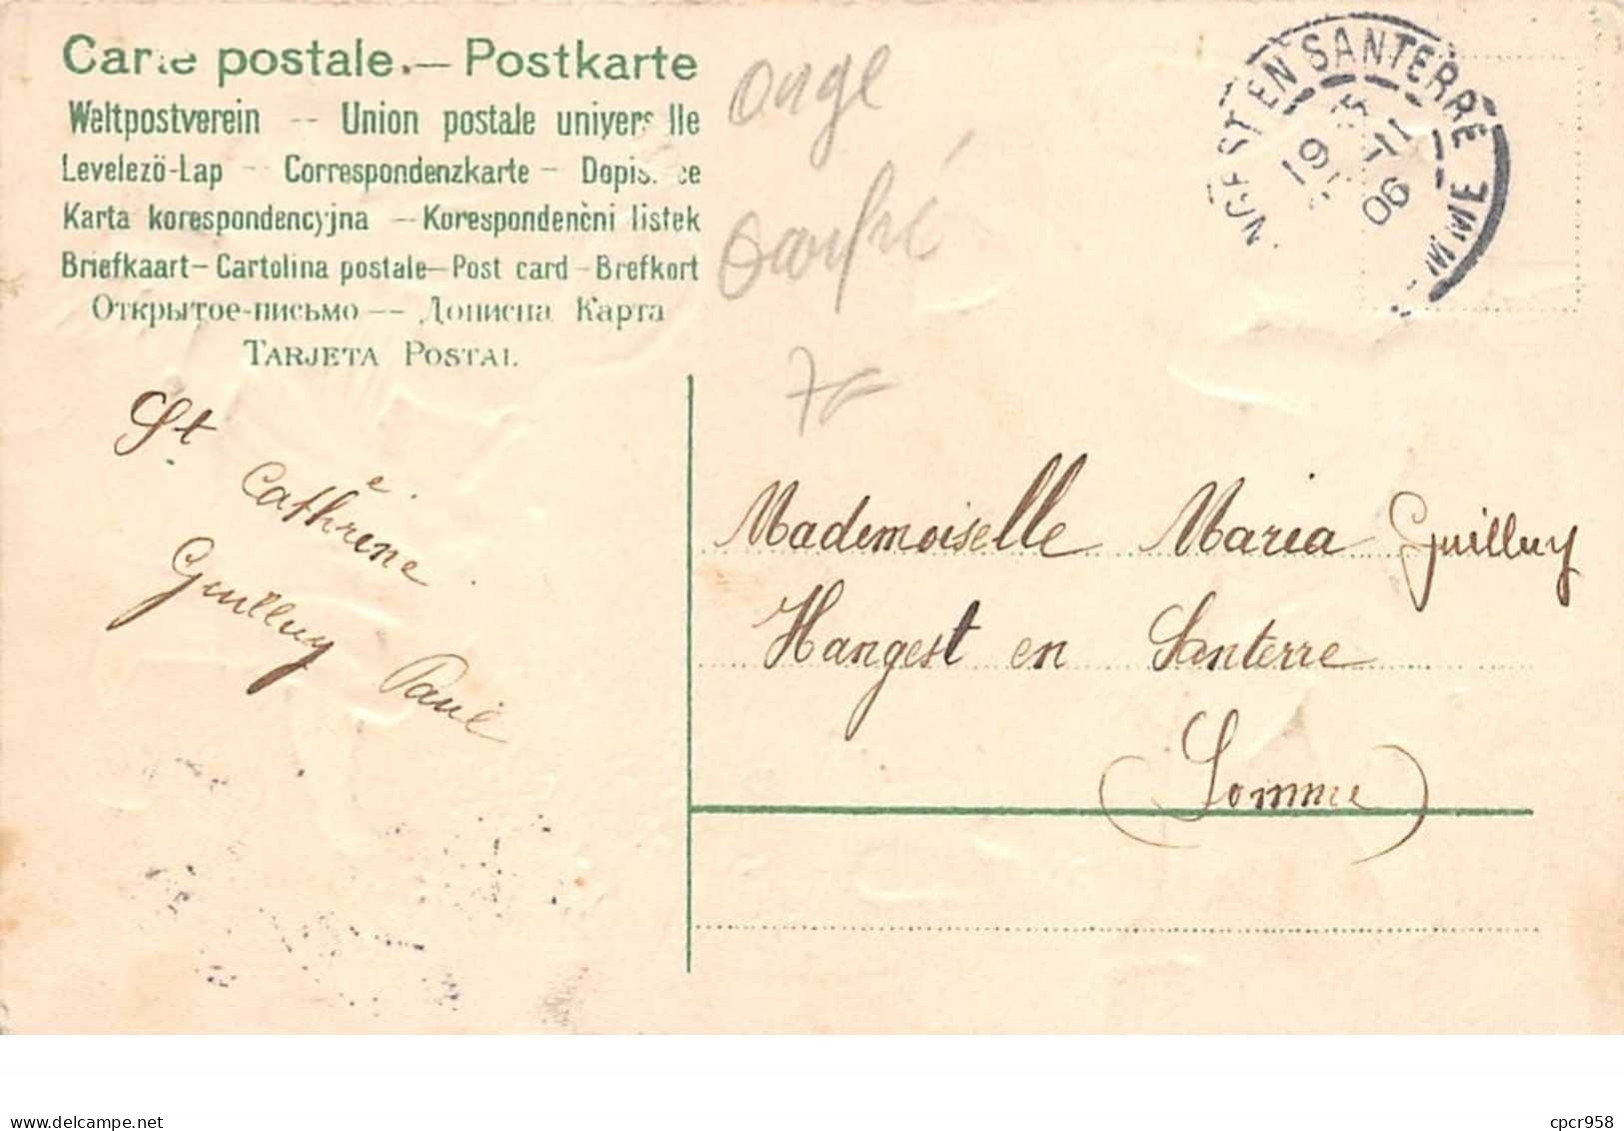 Carte postale. — Postkarte
Weltpostverein -- Union postale universelle
Levelező-Lap - Correspondenzkarte - Dopisnice
Karta korespondencyjna - Korespondenčni listek
Briefkaart - Cartolina postale - Post card - Brefkort
Открытое-письмо -- Дописна Карта
TARJETA POSTAL
ange
gaufré
NGEST EN SANTERRE
19 15
5-11
06
St
Cathrène
Guilluy Paul
Mademoiselle Maria Guilluy
Hangest en Santerre
(Somme)
delcampe.net
cpcr958